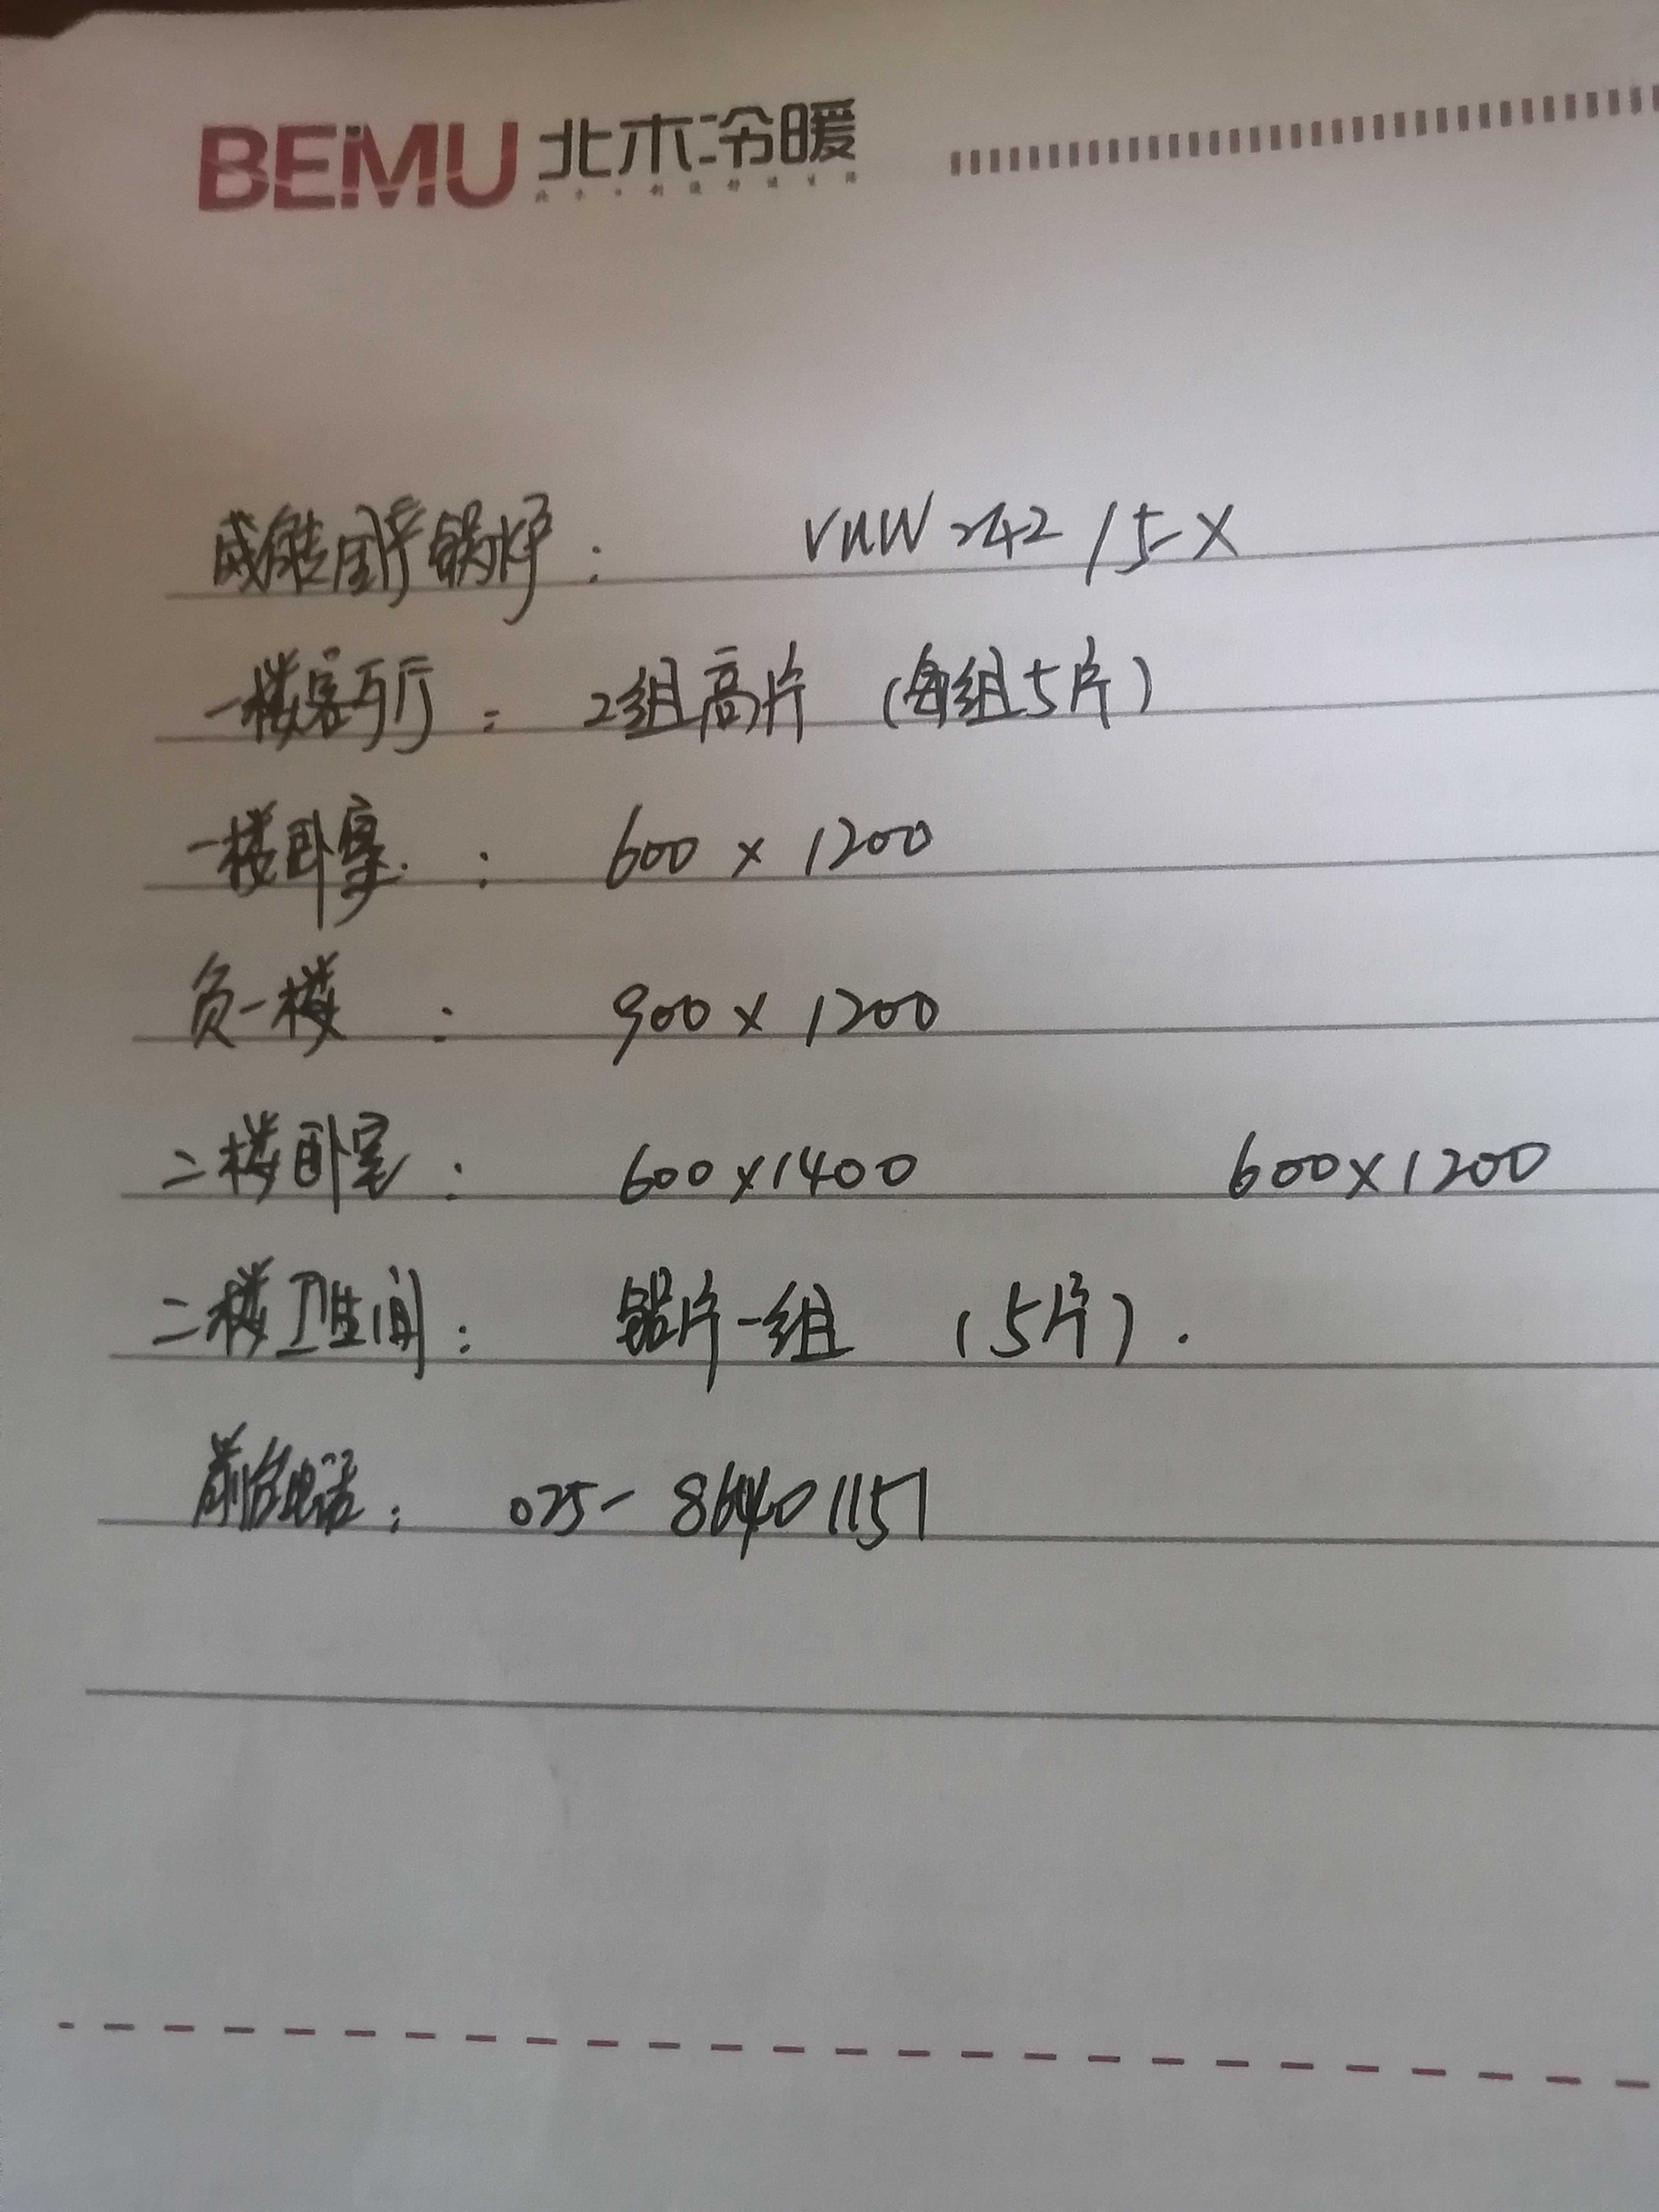 BEMU 北木冷暖
威能国产锅炉： VUW 242 / 5-X
一楼客厅： 2组高片 （每组5片）
一楼卧室： 600 × 1200
负一楼： 900 × 1200
二楼卧室： 600×1400 600×1200
二楼卫生间： 铝片一组 （5片）.
前台电话： 025-86401151